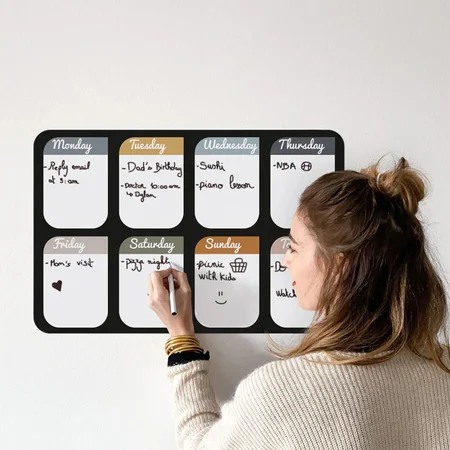 Monday
-Reply email
at 9:am
Tuesday
-Dad's Birthday
-Doctor 10:00am
↳ Dylan
Wednesday
-Sushi
-piano lesson
Thursday
-NBA
Friday
-Mom's visit
Saturday
-pizza night
Sunday
-picnic
with kids
Watch